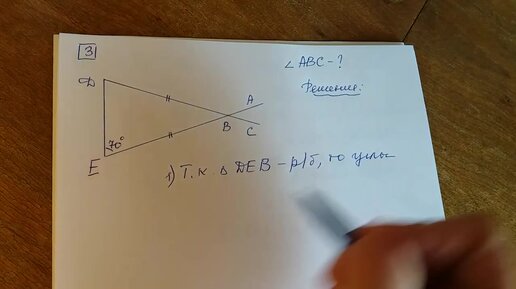 3
∠ABC - ?
Решение:
D
A
B
C
70°
E
1) Т.к. △ DEB - р/б, то углы